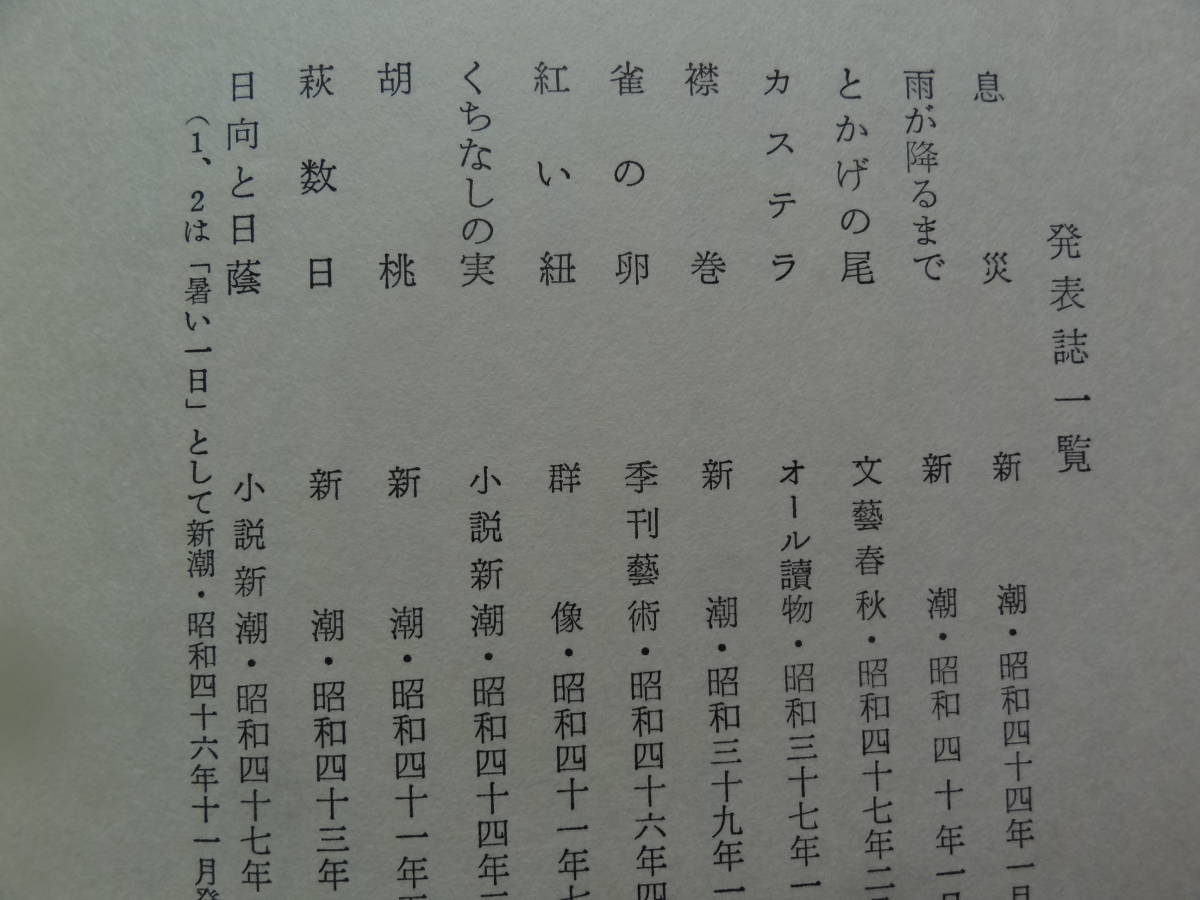 発表誌一覧
息災 新潮・昭和四十四年一月
雨が降るまで 新潮・昭和四十年一
とかげの尾 文藝春秋・昭和四十七年二
カステラ オール讀物・昭和三十七年一
襟巻 新潮・昭和三十九年一
雀の卵 季刊藝術・昭和四十六年四
紅い紐 群像・昭和四十一年七
くちなしの実 小説新潮・昭和四十四年
胡桃 新潮・昭和四十一年
萩数日 新潮・昭和四十三年
日向と日蔭 小説新潮・昭和四十七年
（1、2は「暑い一日」として新潮・昭和四十六年十一月発